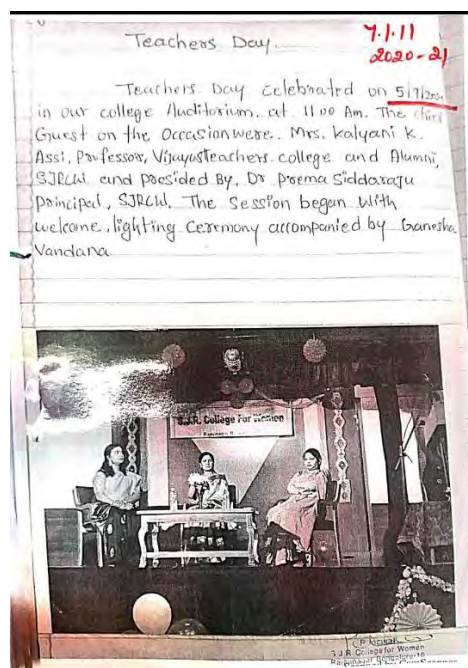 Teachers Day
7.1.11
2020-21
Teachers Day celebrated on
in our college Auditorium. at 11 00 Am. The chief
Guest on the Occasion were. Mrs. Kalyani K.
Assi, Professor, Vijaya Teachers college and Alumni,
SJRCW and presided By, Dr Prema Siddaraju
Principal, SJRCW. The Session began with
welcome, lighting Ceremony accompanied by Ganesha
Vandana
S.J.R. College For Women
S.J.R. College for Women